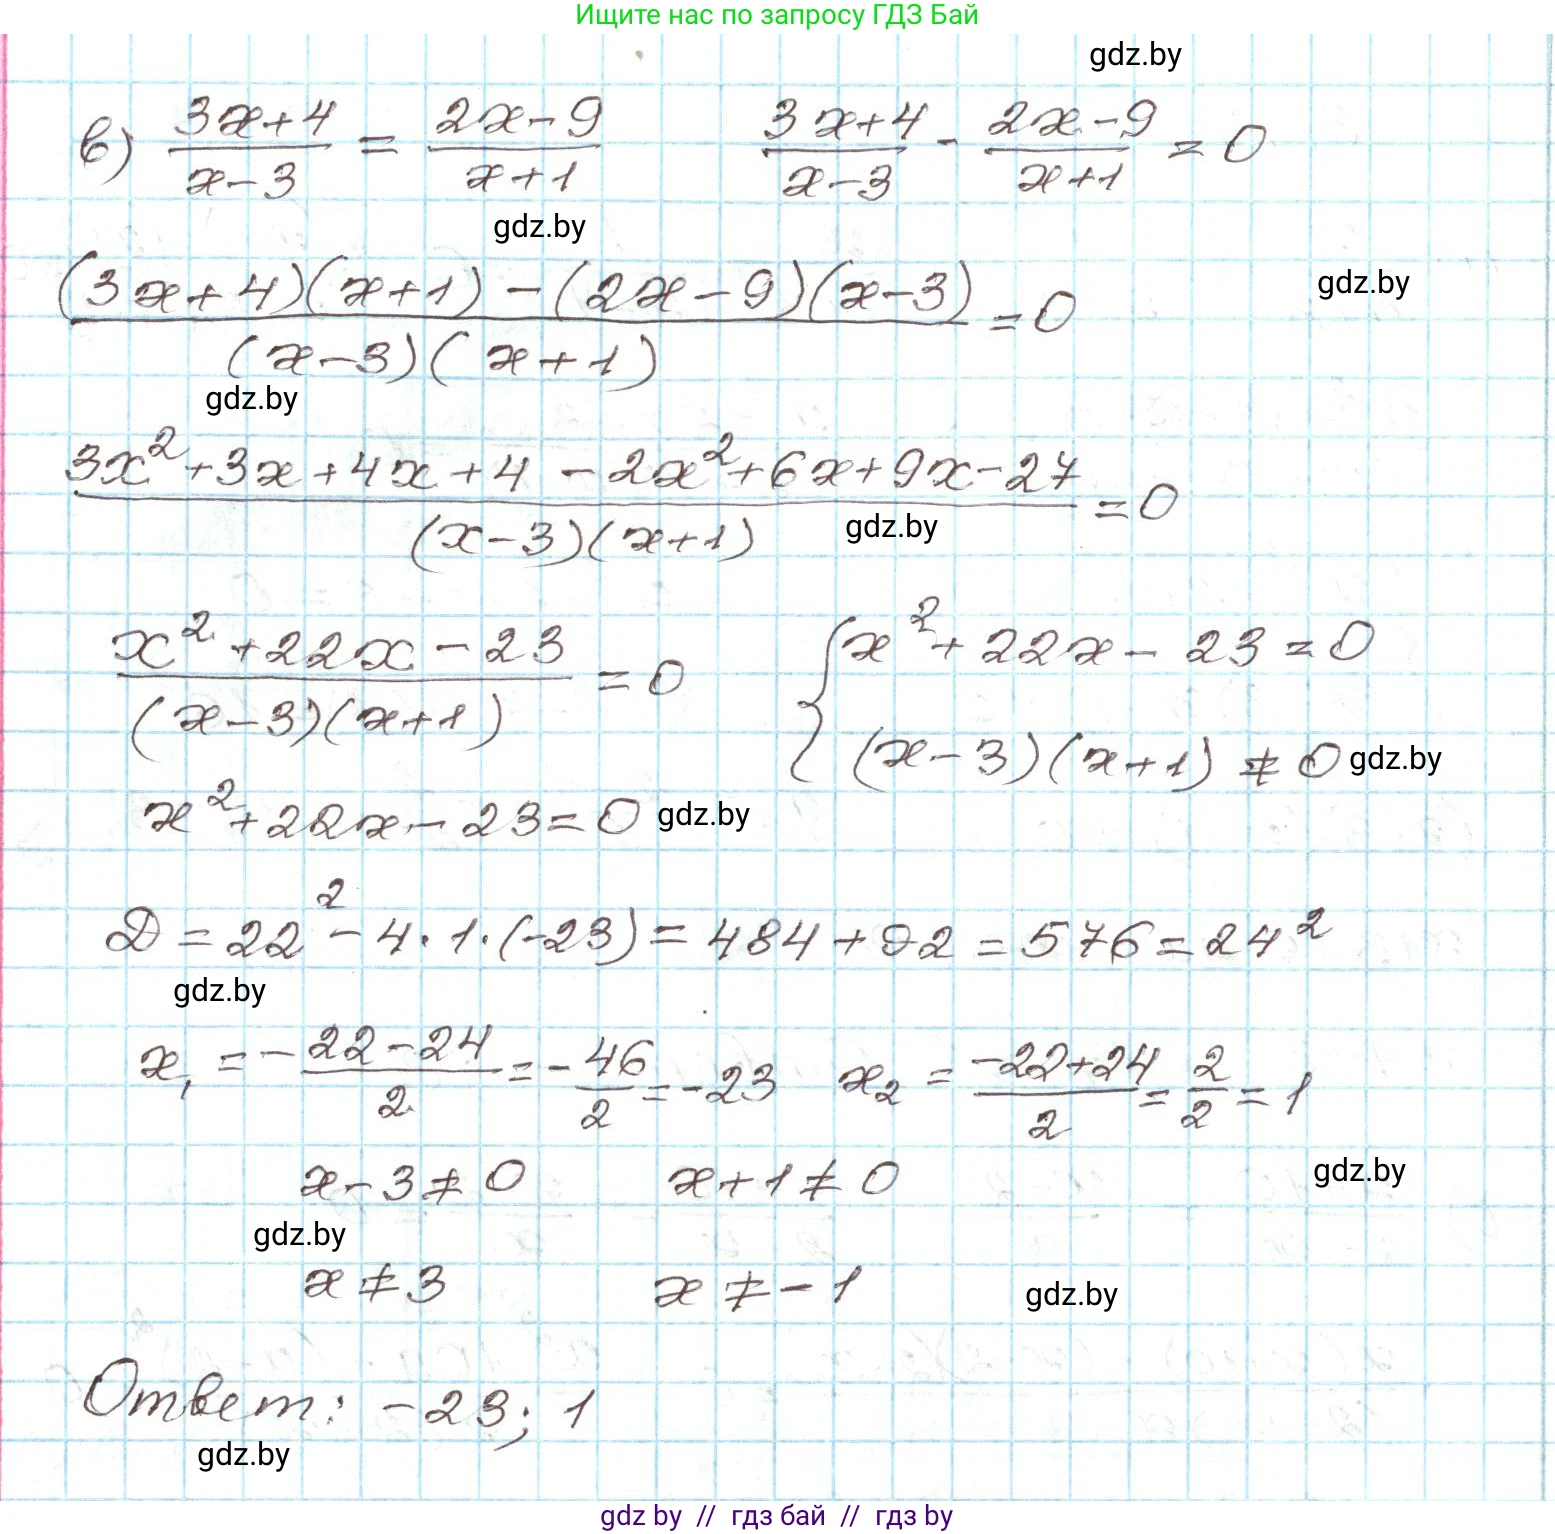 Ищите нас по запросу ГДЗ Бай
gdz.by
в) (3x+4)/(x-3) = (2x-9)/(x+1)   (3x+4)/(x-3) - (2x-9)/(x+1) = 0
gdz.by
((3x+4)(x+1) - (2x-9)(x-3))/((x-3)(x+1)) = 0
gdz.by
gdz.by
(3x²+3x+4x+4-2x²+6x+9x-27)/((x-3)(x+1)) = 0
gdz.by
(x²+22x-23)/((x-3)(x+1)) = 0   { x²+22x-23=0
(x-3)(x+1) ≠ 0
gdz.by
x²+22x-23=0
gdz.by
D = 22² - 4·1·(-23) = 484+92 = 576 = 24²
gdz.by
x₁ = -(22-24)/2 = -46/2 = -23   x₂ = (-22+24)/2 = 2/2 = 1
x-3≠0   x+1≠0
gdz.by
gdz.by
x≠3   x≠-1
gdz.by
Ответ: -23; 1
gdz.by
gdz by // гдз бай // гдз by